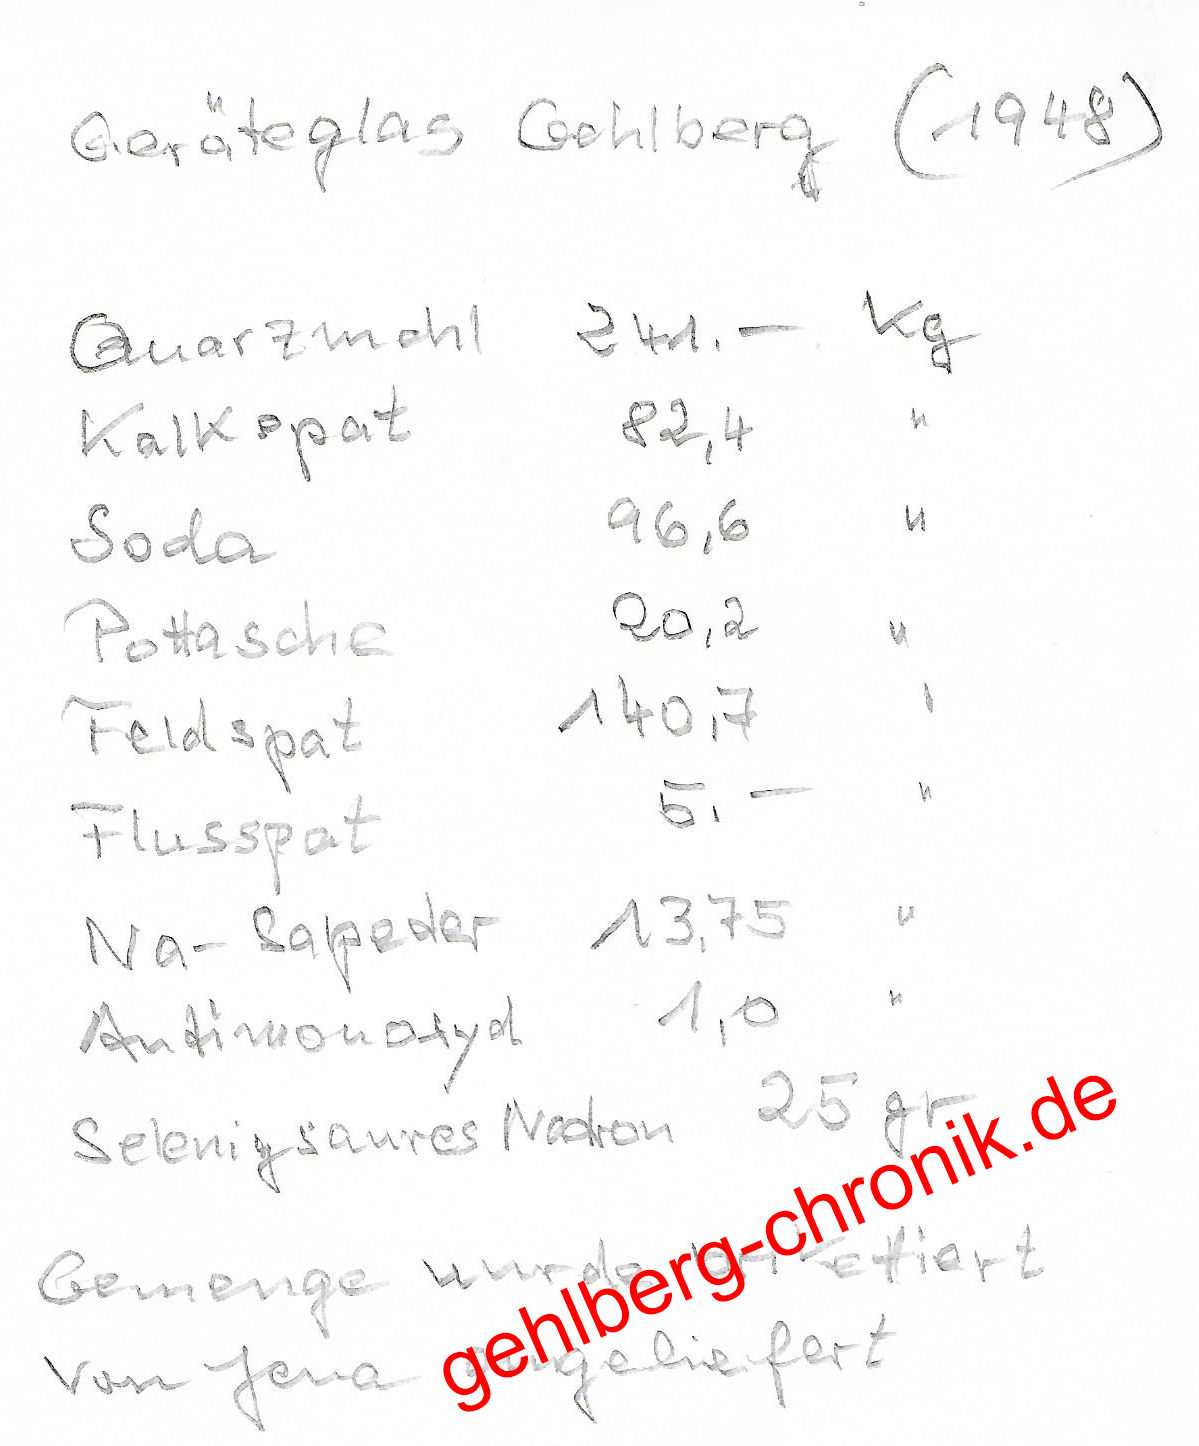 Geräteglas Gehlberg (1948)
Quarzmehl 241.— Kg
Kalkspat 82,4 "
Soda 96,6 "
Pottasche 20,2 "
Feldspat 140,7 "
Flusspat 5.— "
Na-Salpeter 13,75 "
Antimonoxyd 1,0 "
Selenigsaures Natron 25 gr
Gemenge wurde brikettiert
von Jena angeliefert
gehlberg-chronik.de